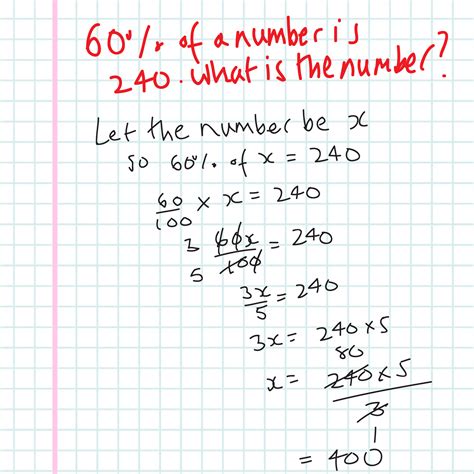 60% of a number is
240. What is the number?
Let the number be x
so 60% of x = 240
60/100 × x = 240
3 60x/100 5 = 240
3x/5 = 240
3x = 240×5
80
x = 240×5/3
1
= 400